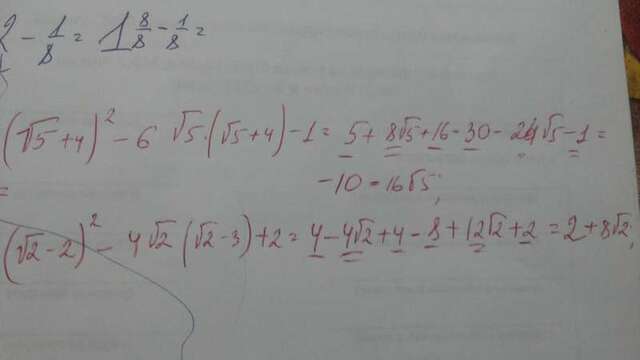 2 - 1/8 = 1 8/8 - 1/8 =
(√5 + 4)² - 6 √5·(√5 + 4) - 1 = 5 + 8√5 + 16 - 30 - 24√5 - 1 =
= -10 - 16√5;
(√2 - 2)² - 4√2 (√2 - 3) + 2 = 4 - 4√2 + 4 - 8 + 12√2 + 2 = 2 + 8√2;